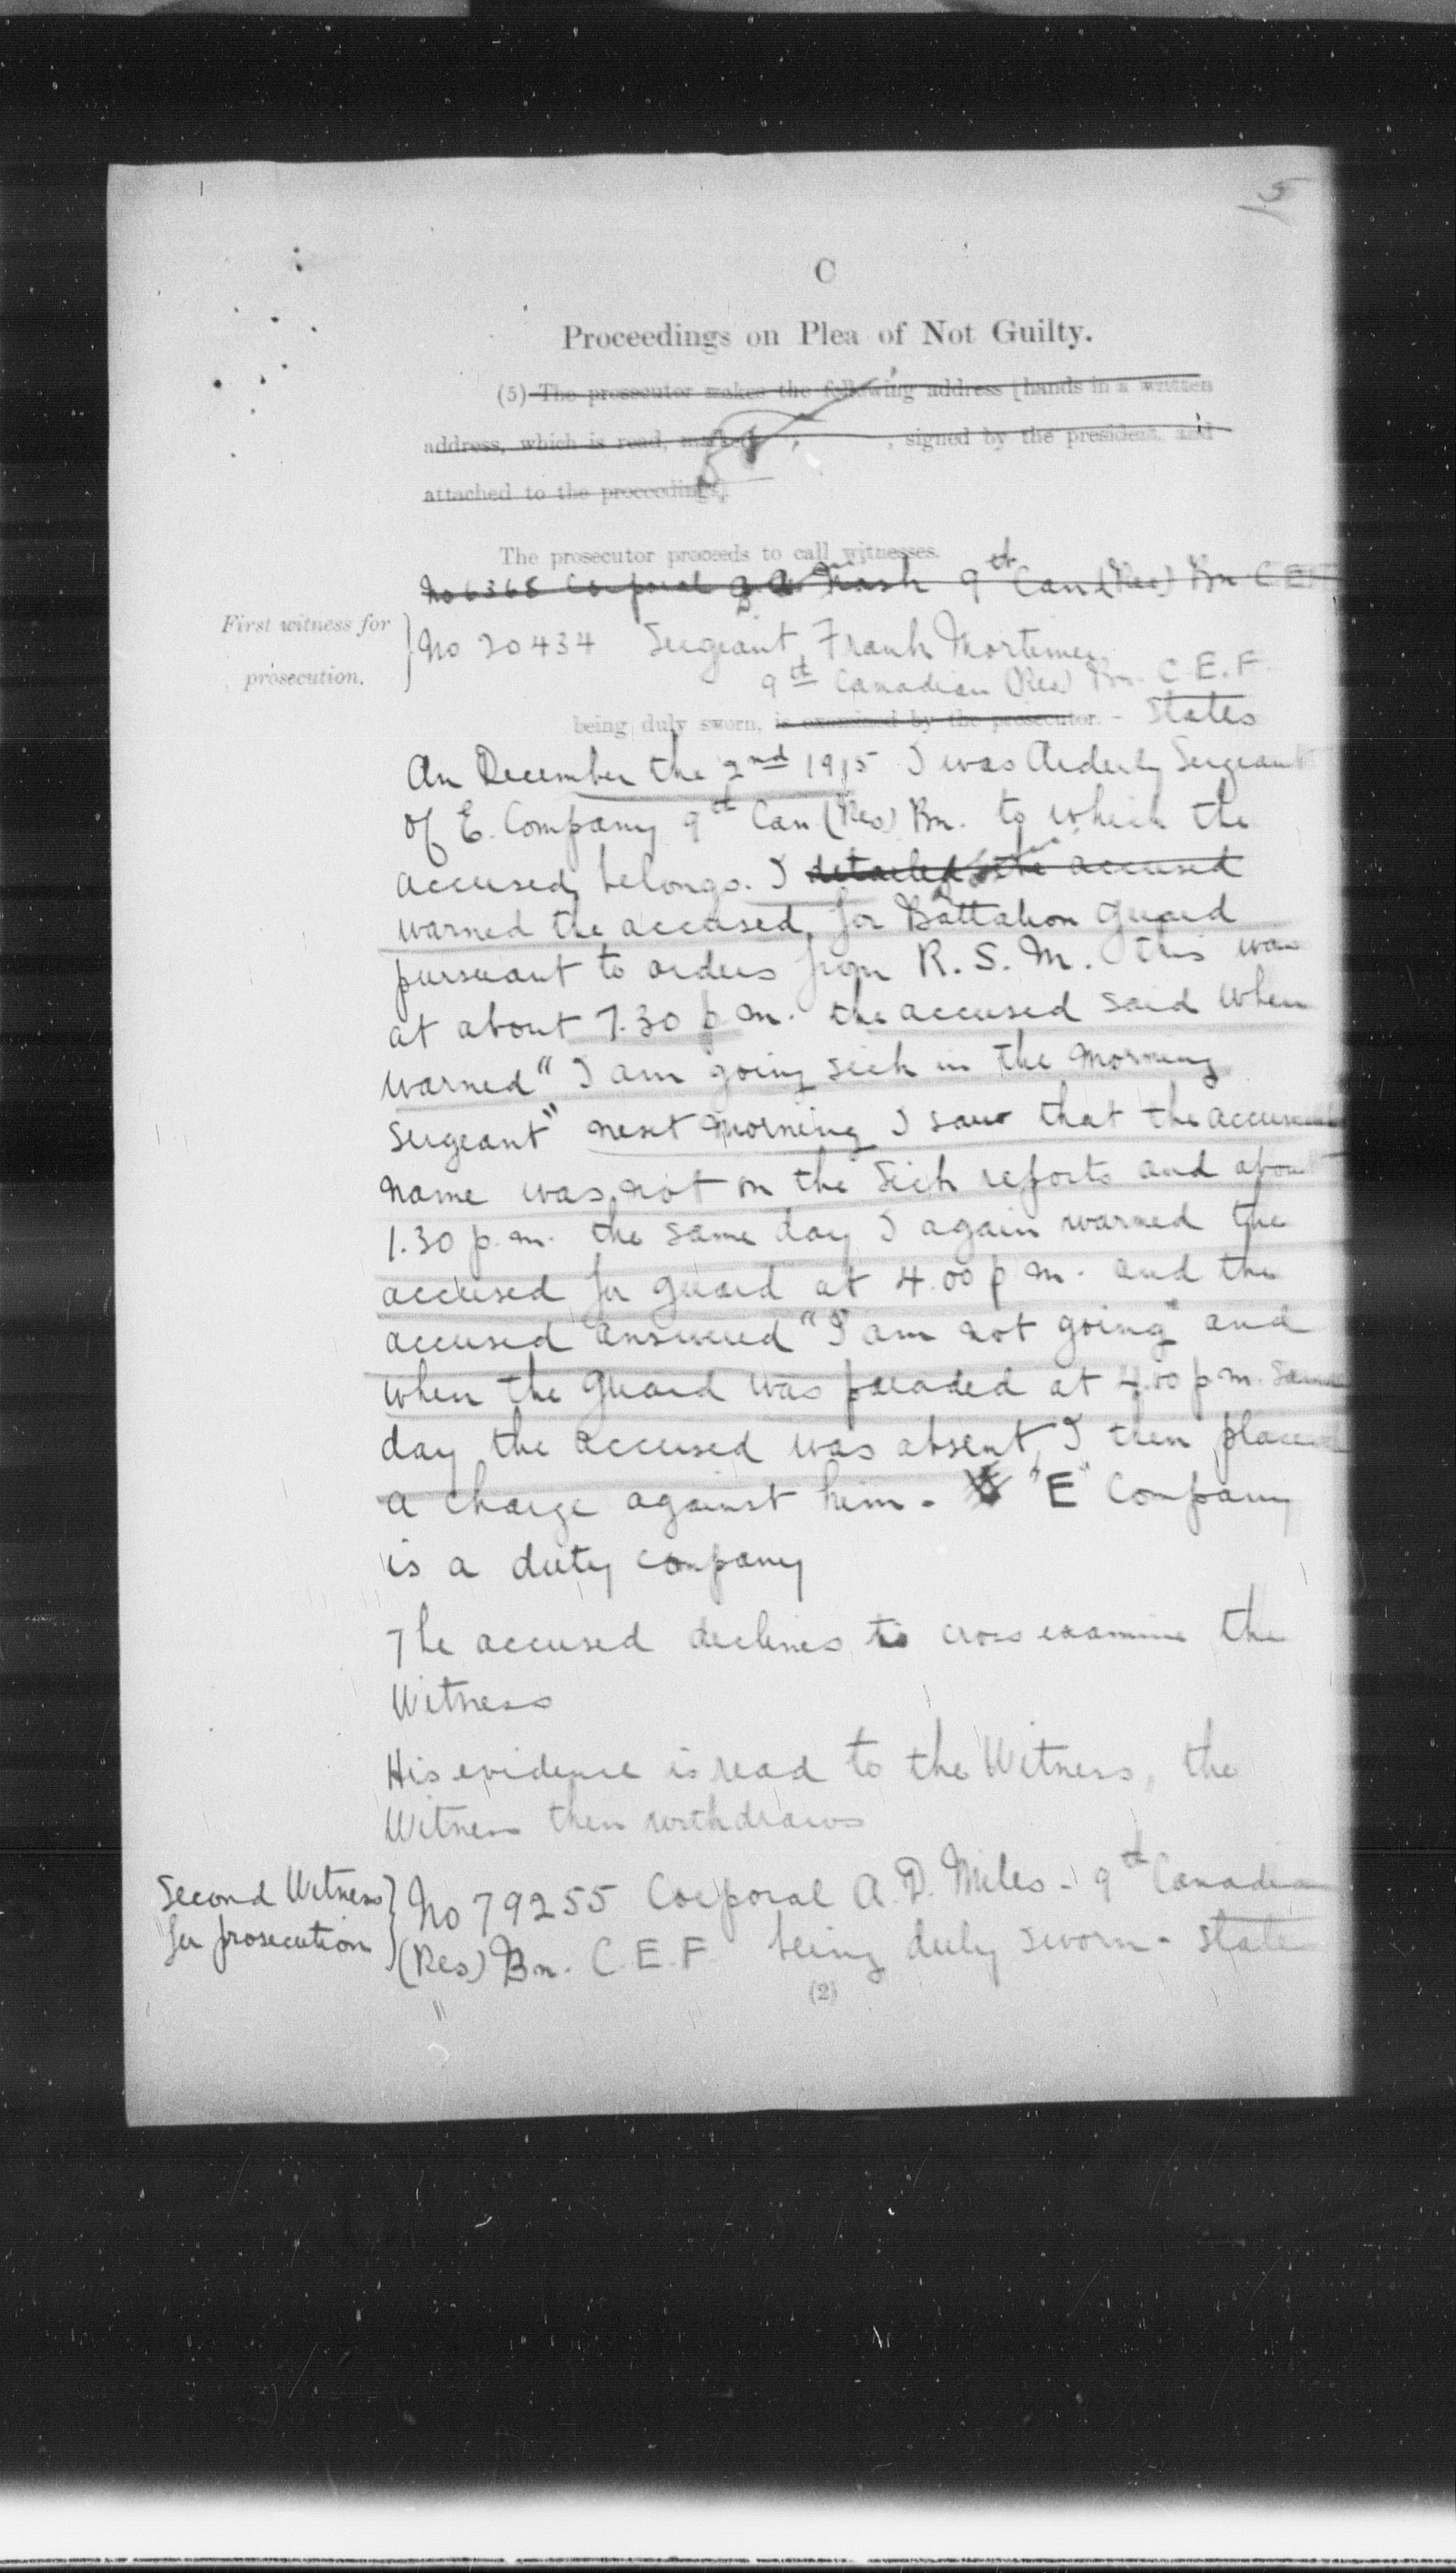 5
C
Proceedings on Plea of Not Guilty.
(5) The prosecutor makes the following address [hands in a written
address, which is read, marked , signed by the president, and
attached to the proceedings].
The prosecutor proceeds to call witnesses.
No 6368 Corporal Nash 9th Can (Res) Bn C.E.F
First witness for
prosecution.
No 20434 Sergeant Frank Mortimer
9th Canadian (Res) Bn. C.E.F.
being duly sworn, is examined by the prosecutor. - States
On December the 2nd 1915 I was Orderly Sergeant
of E. Company 9th Can (Res) Bn. to which the
accused belongs. I detailed the accused
warned the accused for Battalion Guard
pursuant to orders from R.S.M. this was
at about 7.30 p.m. the accused said when
warned "I am going sick in the morning
Sergeant" next morning I saw that the accused
name was not on the Sick reports and about
1.30 p.m. the same day I again warned the
accused for guard at 4.00 p.m. and the
accused answered "I am not going" and
when the guard was paraded at 4.00 p.m. same
day the accused was absent, I then placed
a charge against him. "E" Company
is a duty company
The accused declines to cross examine the
Witness
His evidence is read to the Witness, the
Witness then withdraws
Second Witness
for prosecution
No 79255 Corporal A.D. Miles - 9th Canadian
(Res) Bn. C.E.F. being duly sworn - states
(2)